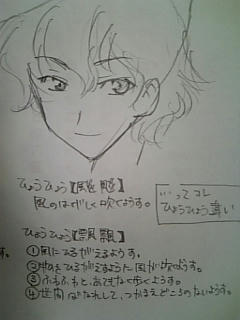 ひょうひょう【颮颮】
風のはげしく吹くようす。
…ってコレ
ひょうひょう違い
ひょうひょう【飄飄】
す。
①風にひるがえるようす。
②ひるがえるように風が吹くようす。
③ふらふらと、あてもなく歩くようす。
④世間ばなれして、つかまえどころのないようす。